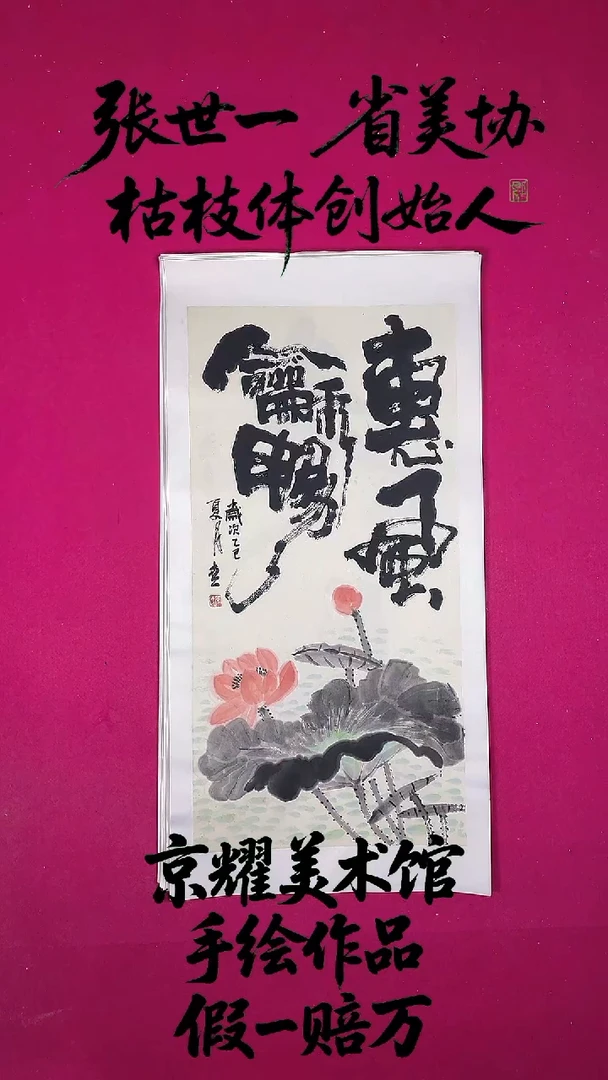 张世一 省美协
枯枝体创始人
惠风
龢暢
歲次乙巳
夏月
京耀美术馆
手绘作品
假一赔万